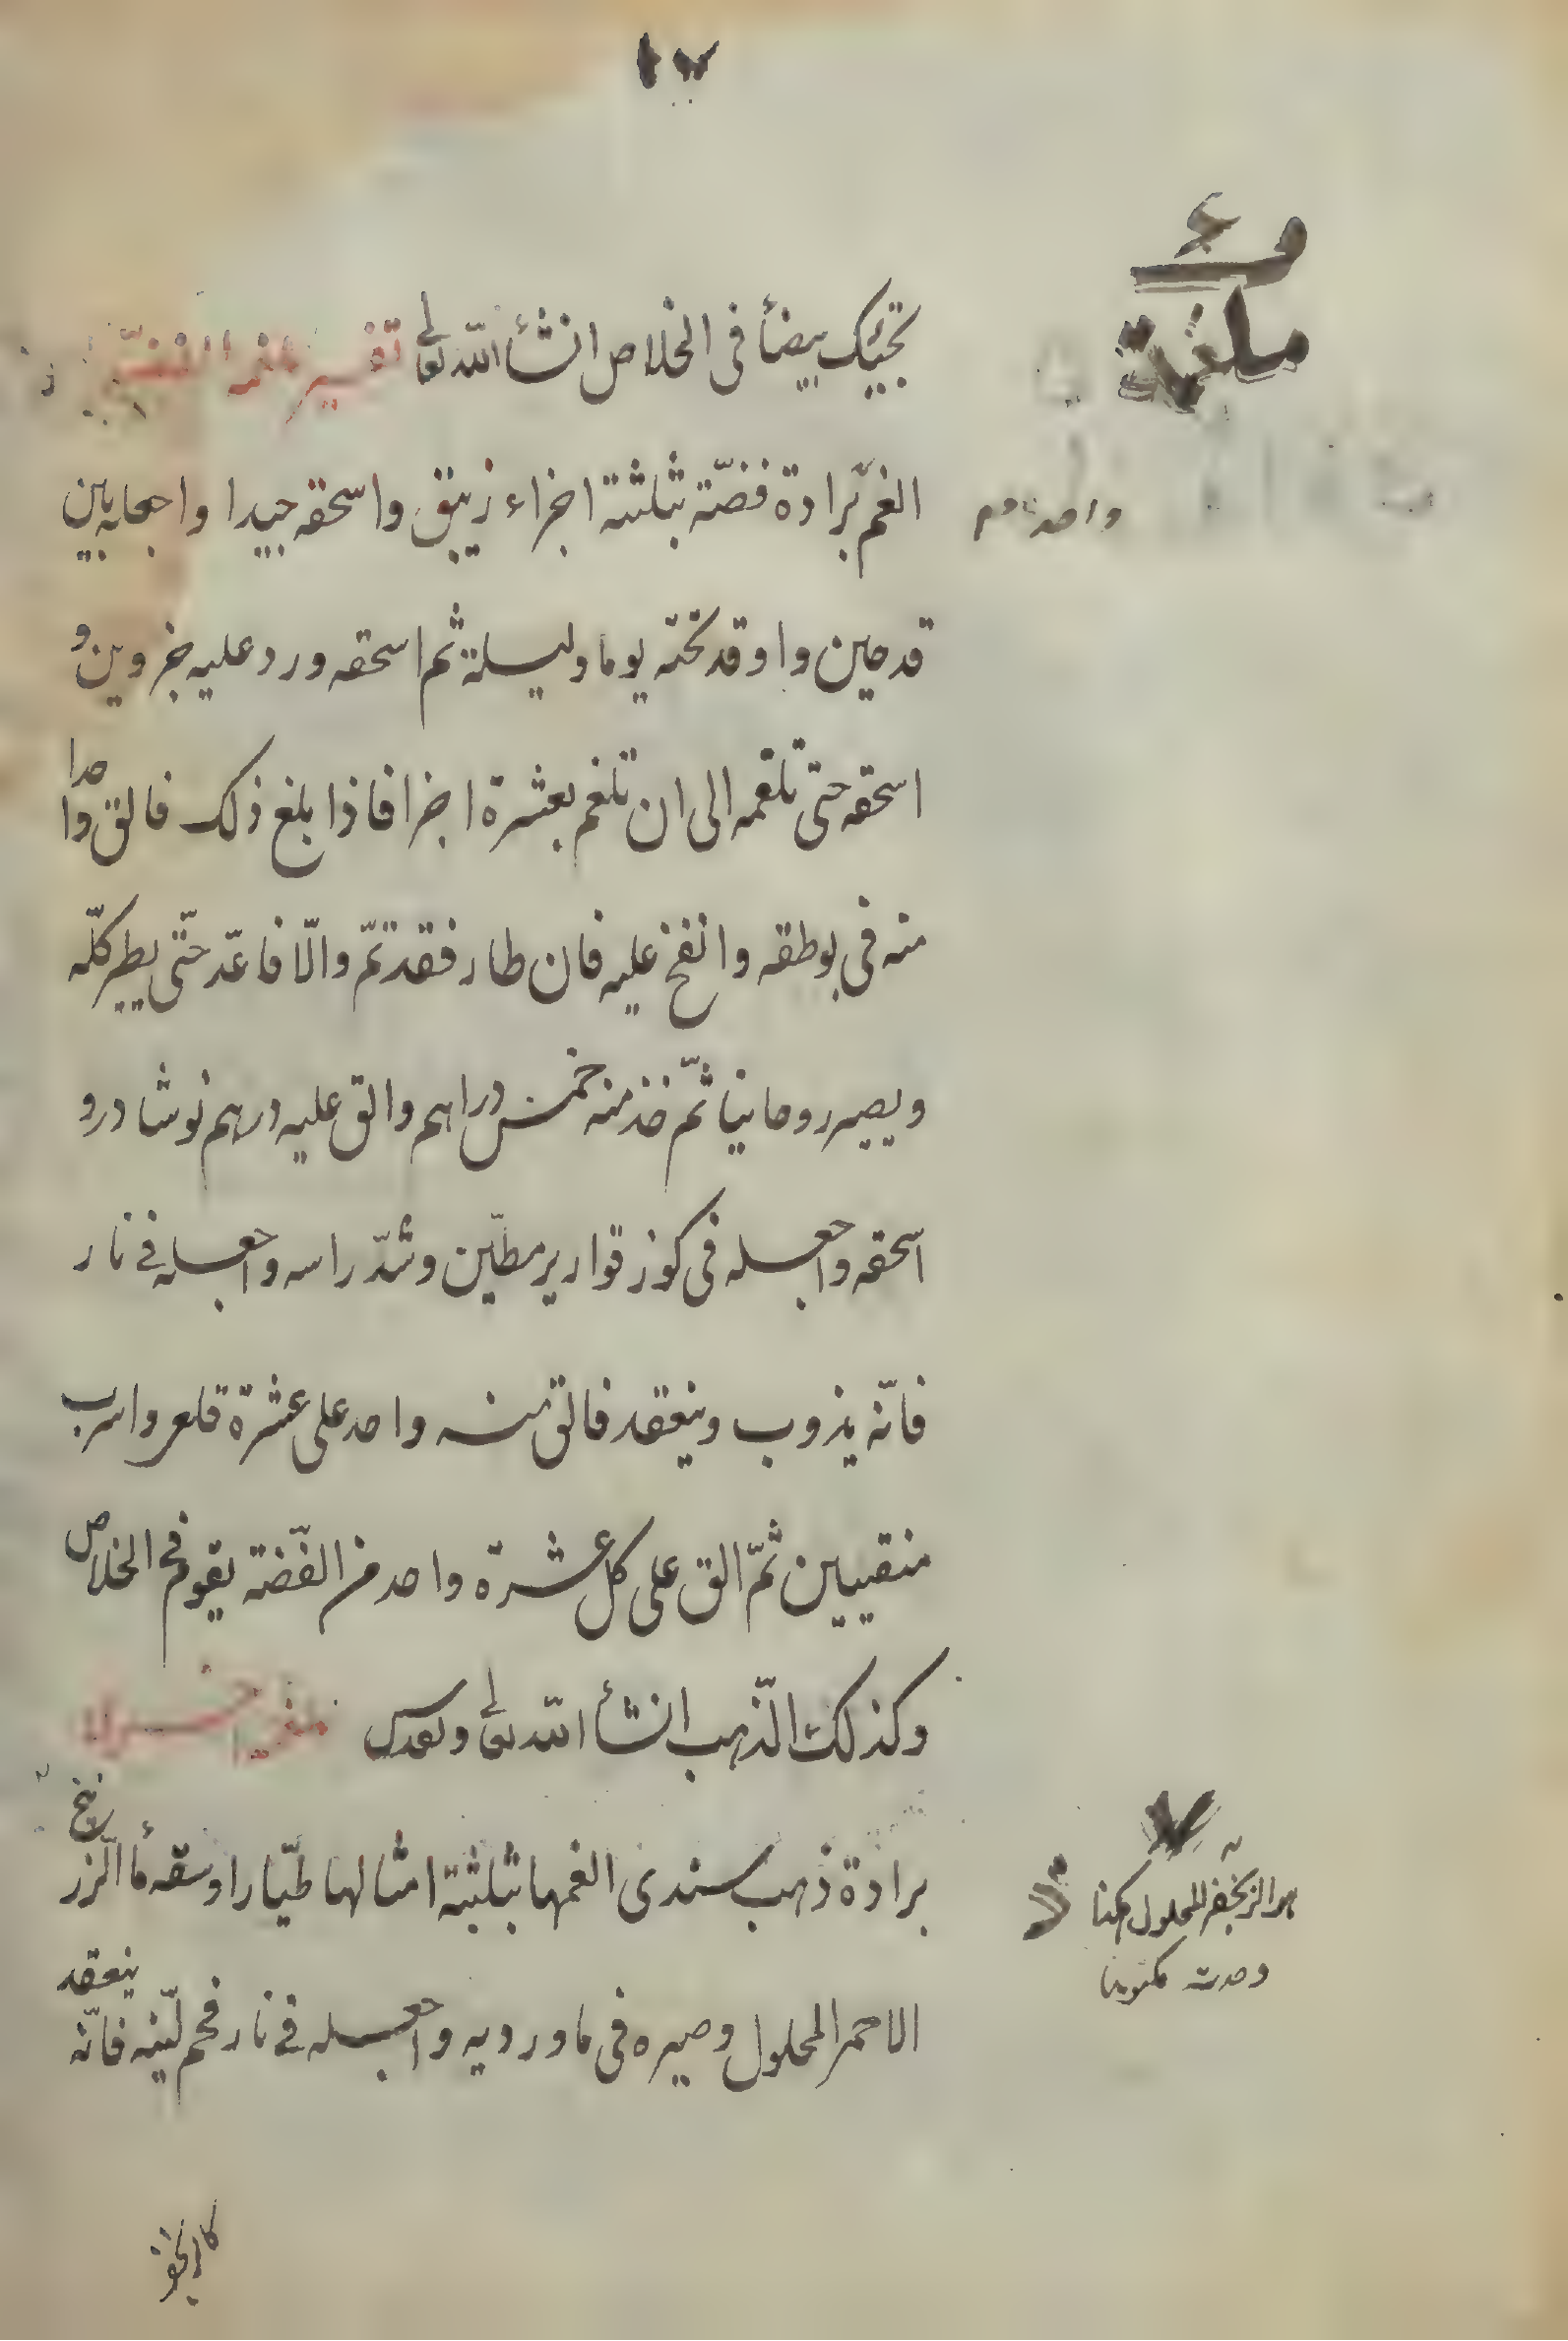 ١٧
تجيئك بيضأ في الخلاص انشأ الله تعالى تفسير ملغمة الفضّة
الغم برادة فضّة بثلثة اجزاء زيبق واسحقه جيدا واجعله بين
قدحين واوقد تحته يوما وليلة ثم اسحقه ورد عليه جزوين و
اسحقه حتى تلقمه الى ان تلغم بعشرة اجزا فاذا بلغ ذلك فالق واحدا
منه في بوطقه وانفخ عليه فان طار فقد تمّ والّا فاعد حتّى يطير كلّه
ويصير روحانيا ثمّ خذ منه خمس دراهم والق عليه درهم نوشادر و
اسحقه واجعله في كوز قوارير مطيّن وشدّ راسه واجعله في نار
فانّه يذوب وينعقد فالق منه واحد على عشرة قلعى واسرب
منقيين ثمّ الق على كل عشرة واحد من الفّضة يقوم في الخلاص
وكذلك الّذهب انشأ الله تعالى وتقدس
برادة ذهب سندى الغمها بثلثة امثالها طيّارا وسقه مأ الزرنيخ
الاحمر المحلول وصيره في ماورديه واجعله في نار فحم ليّنه فانّه ينعقد
ملغمة
واحد
الزنجفر المحلول